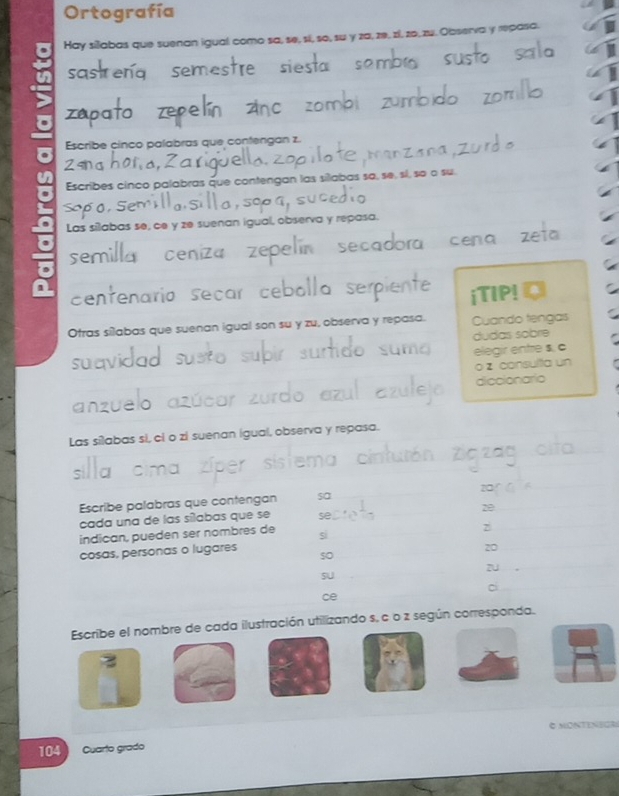 Ortografía
Palabras a la vista
Hay sílabas que suenan igual como sa, se, si, so, su y za, ze, zi, zo, zu. Observa y repasa.
sastrería semestre siesta sombra susto sala
zapato zepelín zinc zombi zumbido zorrillo
Escribe cinco palabras que contengan z.
zanahoria, Zarigüella, zopilote, manzana, zurdo
Escribes cinco palabras que contengan las sílabas sa, se, si, so o su.
sapo, semilla, silla, sopa, sucedio
Las sílabas se, ce y ze suenan igual, observa y repasa.
semilla ceniza zepelín secadora cena zeta
centenario secar cebolla serpiente
¡TIP!
Cuando tengas
dudas sobre
elegir entre s, c
o z consulta un
diccionario
Otras sílabas que suenan igual son su y zu, observa y repasa.
suavidad susto subir surtido suma
anzuelo azúcar zurdo azul azulejo
Las sílabas si, ci o zi suenan igual, observa y repasa.
silla cima zíper sistema cinturón zigzag cita
Escribe palabras que contengan
cada una de las sílabas que se
indican, pueden ser nombres de
cosas, personas o lugares
sa
se
si
so
su
ce
za
ze
zi
zo
zu
ci
Escribe el nombre de cada ilustración utilizando s, c o z según corresponda.
104 Cuarto grado